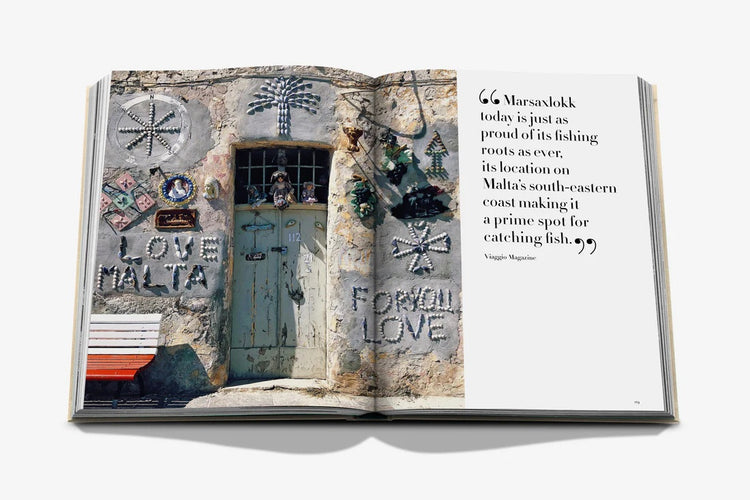 N
LOVE
MALTA
112
FOR YOU
LOVE
“Marsaxlokk
today is just as
proud of its fishing
roots as ever,
its location on
Malta’s south-eastern
coast making it
a prime spot for
catching fish.”
Viaggio Magazine